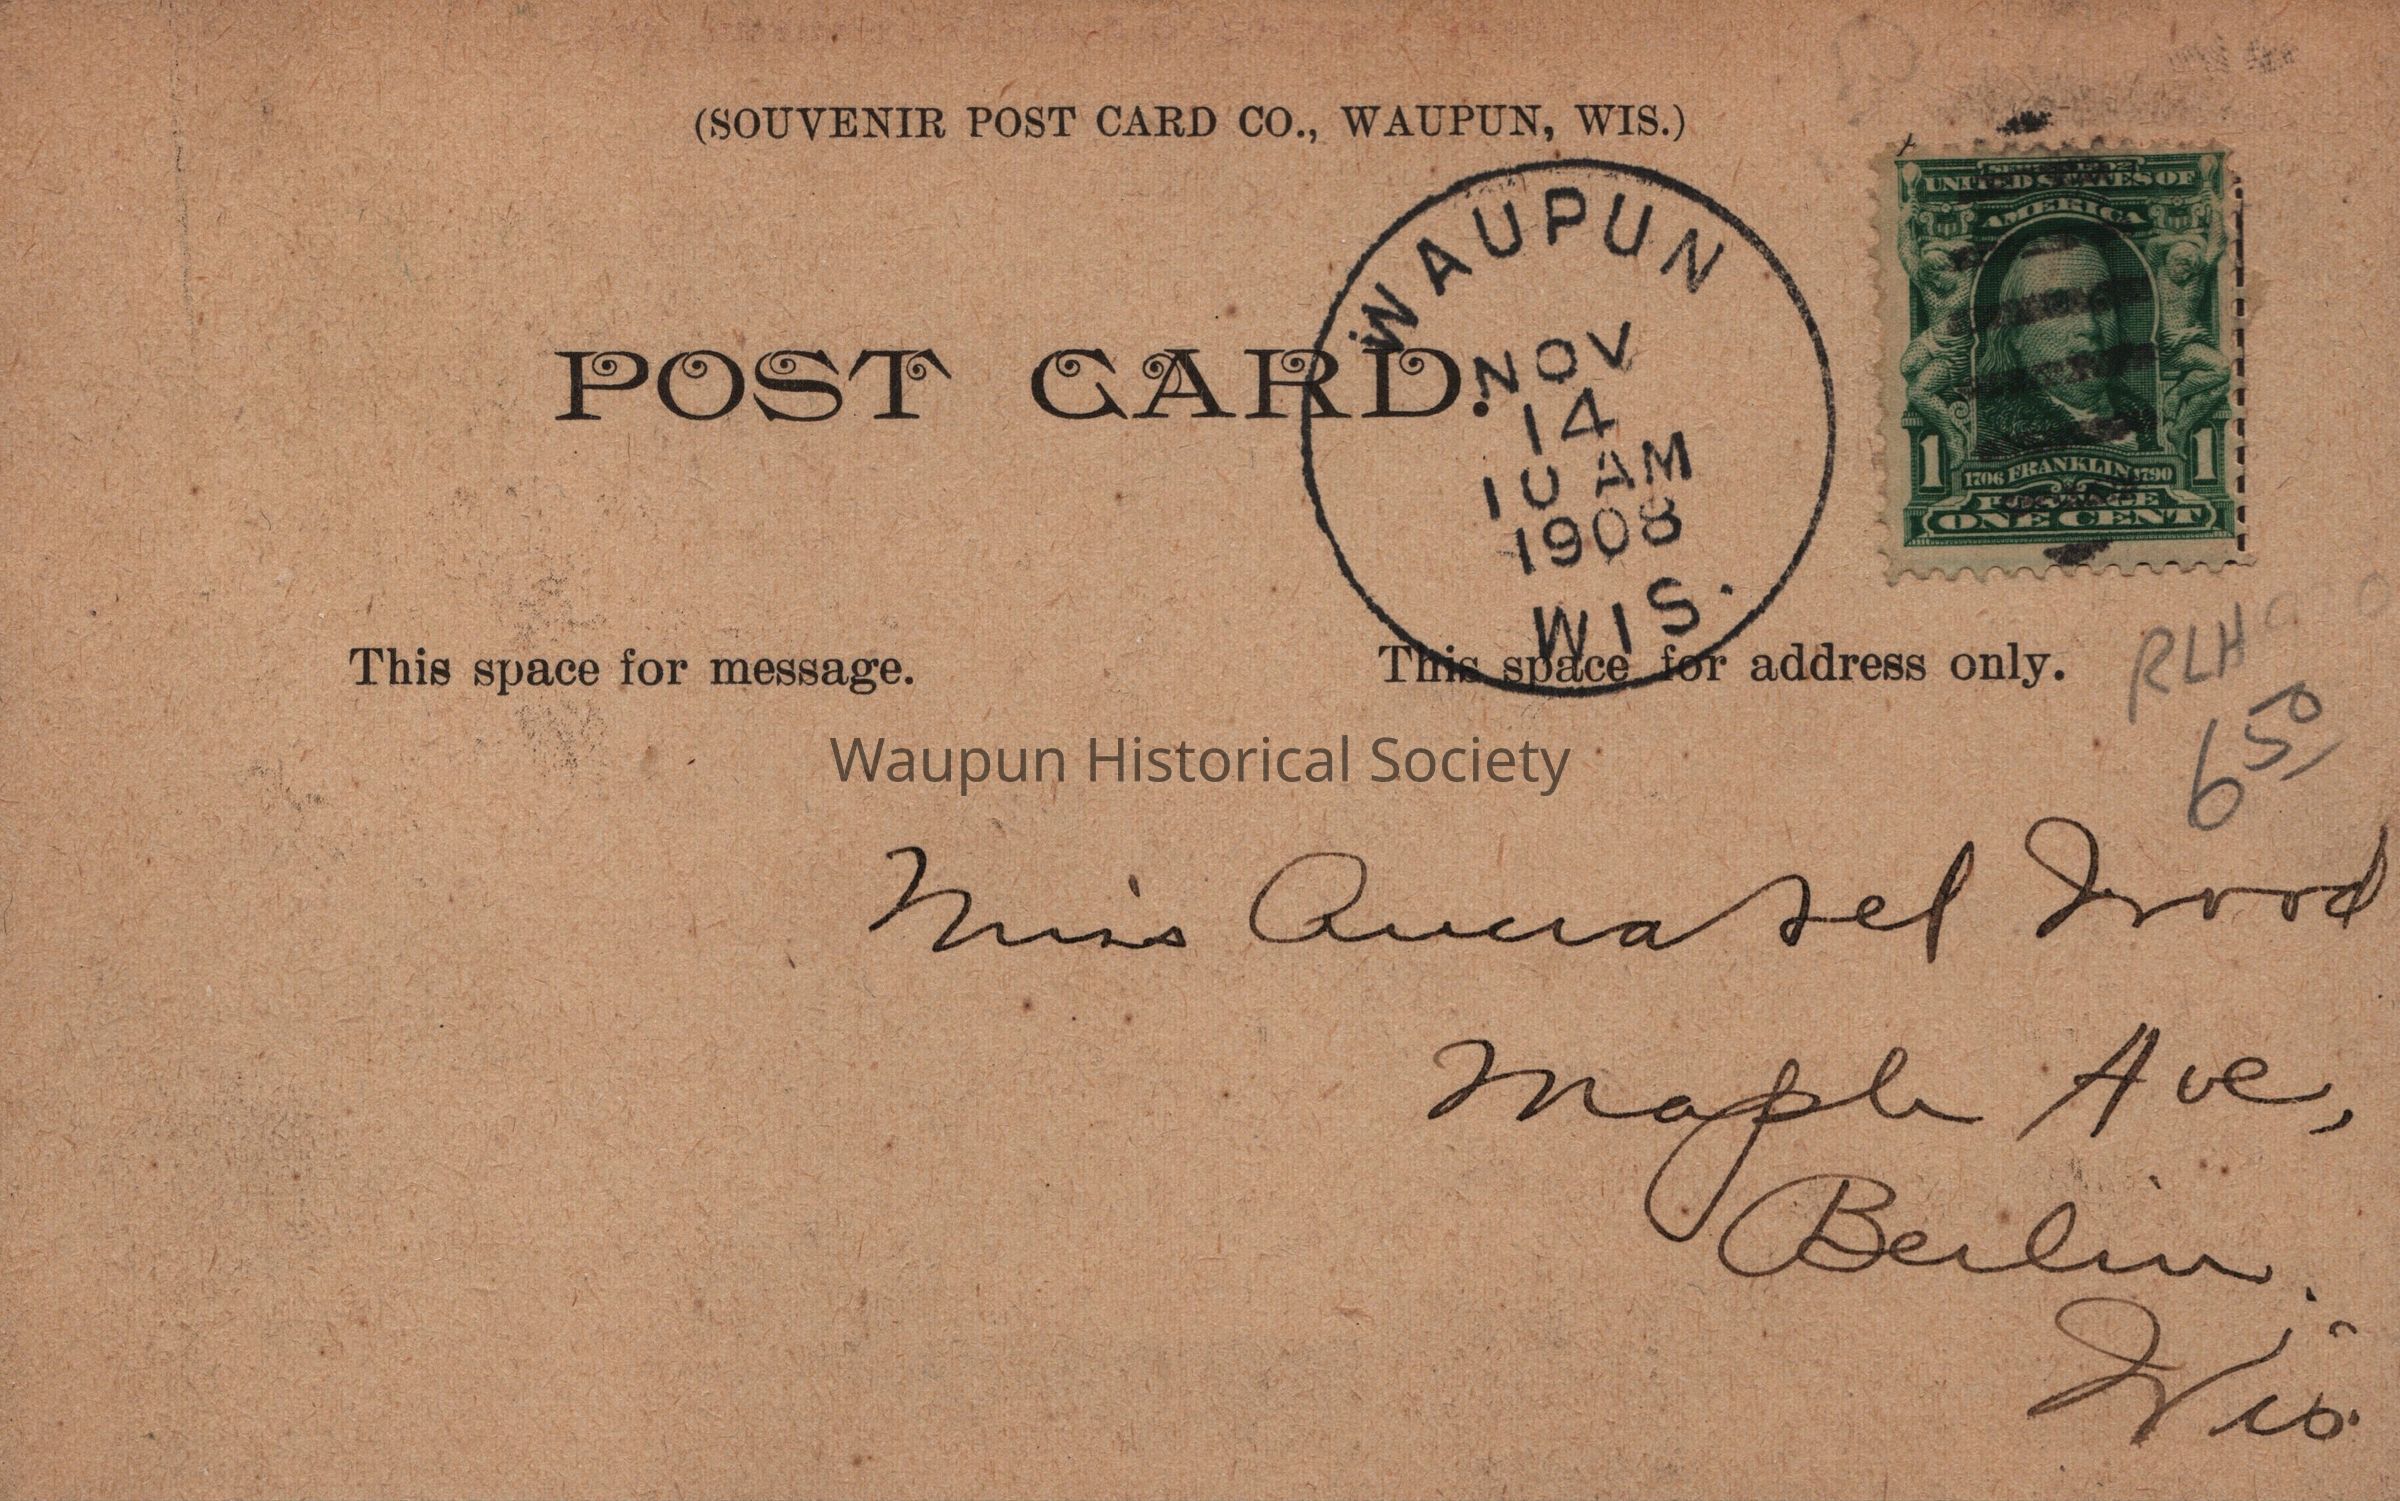 (SOUVENIR POST CARD CO., WAUPUN, WIS.)
POST CARD.
WAUPUN
NOV
14
10 AM
1908
WIS.
UNITED STATES OF
AMERICA
1706 FRANKLIN 1790
1 1
POSTAGE
ONE CENT
This space for message.
This space for address only.
RLH
6 50
Waupun Historical Society
Miss Wood
Maple Ave,
Berlin
Wis.